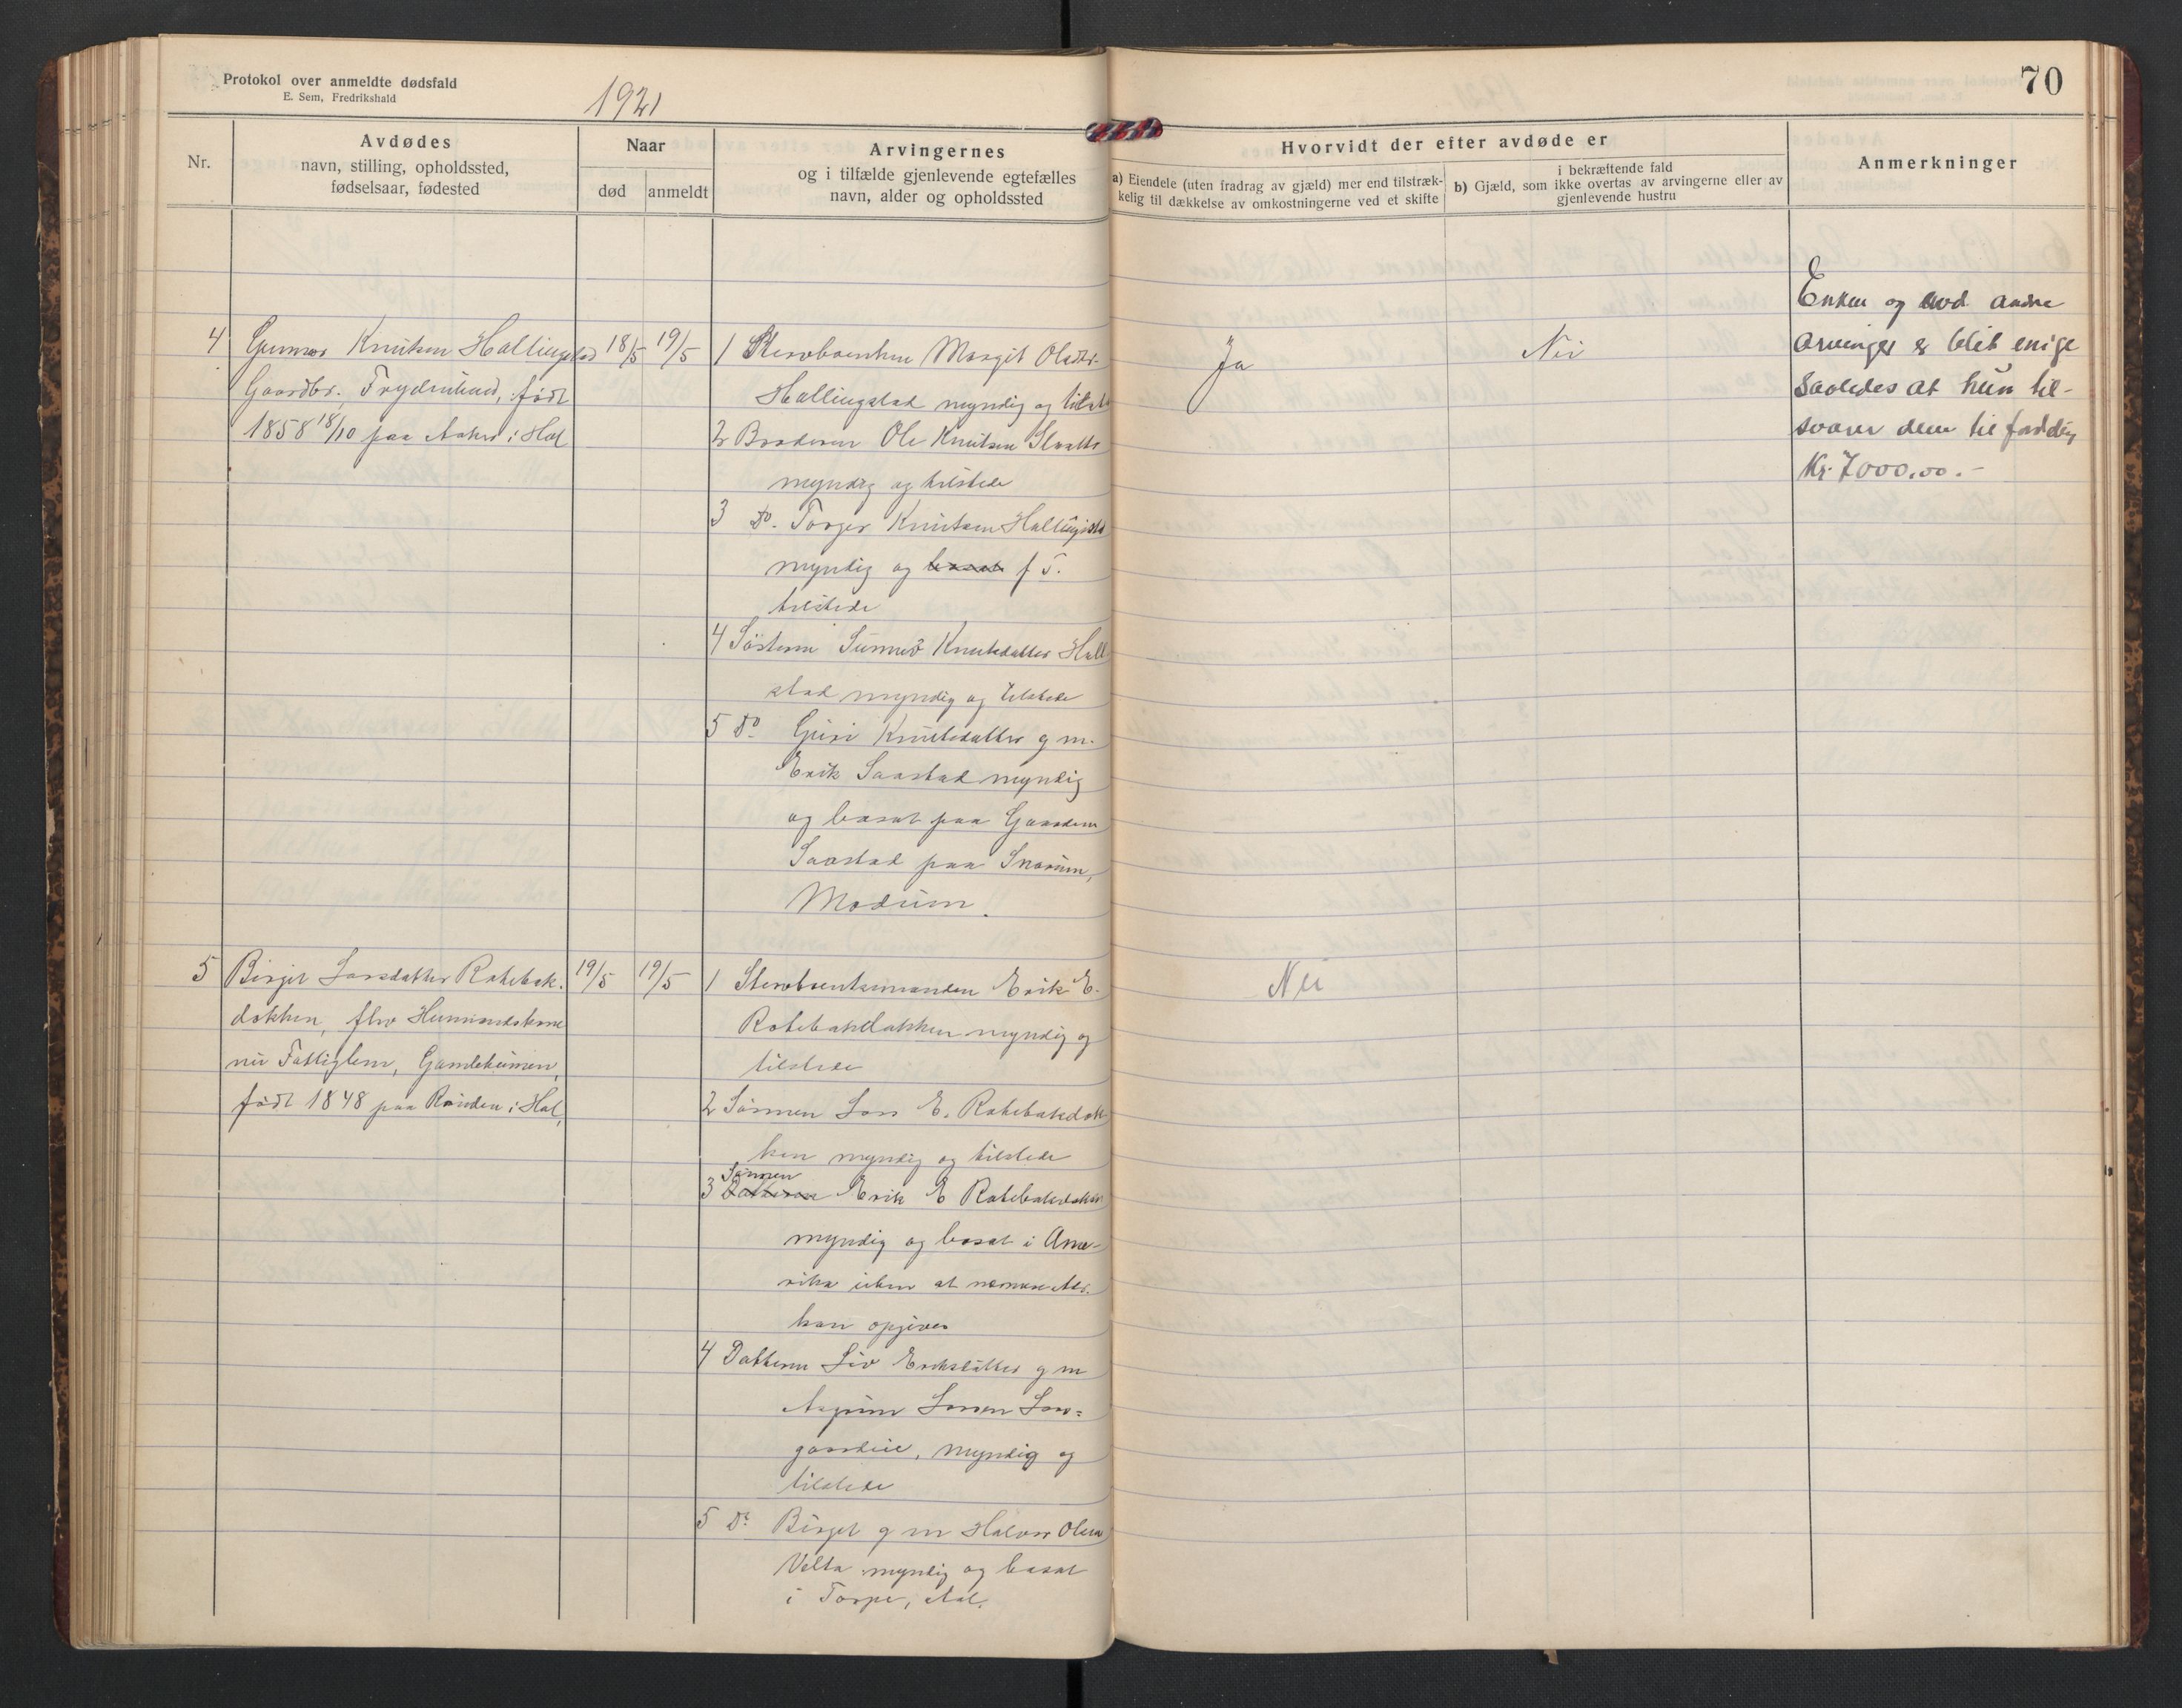 Protokol over anmeldte dødsfald
E. Sem, Fredrikshald
1921
70
Nr.
Avdødes
navn, stilling, opholdssted,
fødselsaar, fødested
Naar
død
anmeldt
Arvingernes
og i tilfælde gjenlevende egtefælles
navn, alder og opholdssted
Hvorvidt der efter avdøde er
a) Eiendele (uten fradrag av gjæld) mer end tilstræk-
kelig til dækkelse av omkostningerne ved et skifte
i bekræftende fald
b) Gjæld, som ikke overtas av arvingerne eller av
gjenlevende hustru
Anmerkninger
4
Gunnar Knutsen Hallingstad
Gaardbr. Frydenlund, født
1858 18/10 paa Aaker i Hol
18/5
19/5
1 Stervboenken Margit Olsdtr.
Hallingstad myndig og tilst
2 Broderen Ole Knutsen Slaatto
myndig og tilstede
3 Do. Torger Knutsen Hallingstad
myndig og bosat f T.
tilstede
4 Søsteren Sunnev Knutsdatter Hall
stad myndig og tilstede
5 Do Guri Knutsdatter g m.
Erik Saastad myndig
og bosat paa Gaarden
Saastad paa Snarum,
Modum.
Ja
Nei
Enken og avd. andre
arvinger er blit enige
saaledes at hun til-
svarer dem tilsammen
Kr. 7000.00.-
5
Birgit Larsdatter Rotebak.
dokken, flv Husmandskone
nu Fattiglem, Gamleheimen,
født 1848 paa Raaden i Hol,
19/5
19/5
1 Stervboenkemanden Erik E.
Rotebakdokken myndig og
tilstede
2 Sønnen Lars E. Rotebakdok
ken myndig og tilstede
Sønnen
3 Datteren Erik E Rotebakdokken
myndig og bosat i Ame-
rika uten at nærmere Adr.
kan opgives
4 Datteren Liv Eriksdatter g m
Asgrim Larsen Lars-
gardeie, myndig og
tilstede
5 Do Birgit g m Halvor Olsen
Velta myndig og bosat
i Torpe, Aal.
Nei